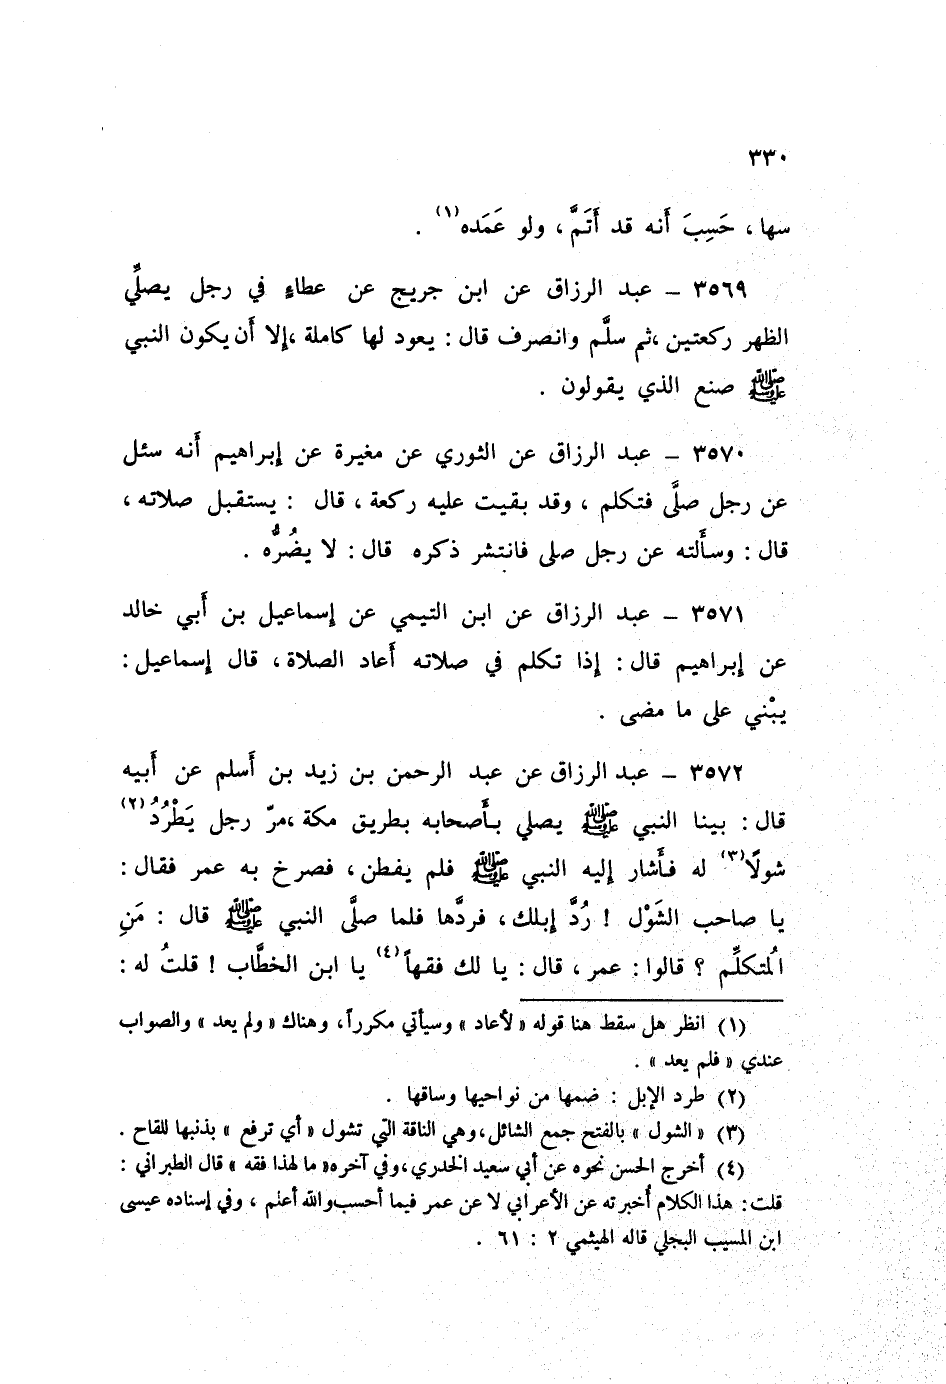 ٣٣٠
سها ، حَسِبَ أَنه قد أَتَمَّ ، ولو عَمَده(١) .
٣٥٦٩ – عبد الرزاق عن ابن جريج عن عطاءٍ في رجل يصلِّي
الظهر ركعتين ،ثم سلَّم وانصرف قال : يعود لها كاملة ،إلا أَن يكون النبي
ﷺ صنع الذي يقولون .
٣٥٧٠ – عبد الرزاق عن الثوري عن مغيرة عن إبراهيم أَنه سئل
عن رجل صلَّى فتكلم ، وقد بقيت عليه ركعة ، قال : يستقبل صلاته ،
قال : وسأَلته عن رجل صلى فانتشر ذكره قال : لا يضُرُّه .
٣٥٧١ – عبد الرزاق عن ابن التيمي عن إسماعيل بن أَبي خالد
عن إبراهيم قال : إذا تكلم في صلاته أَعاد الصلاة ، قال إسماعيل :
يبْني على ما مضى .
٣٥٧٢ – عبد الرزاق عن عبد الرحمن بن زيد بن أَسلم عن أَبيه
قال : بينا النبي ﷺ يصلي بأَصحابه بطريق مكة ،مرّ رجل يَطْرُدُ(٢)
شولًا(٣) له فأَشار إليه النبي ﷺ فلم يفطن ، فصرخ به عمر فقال :
يا صاحب الشَوْل ! رُدَّ إبلك ، فردَّها فلما صلَّى النبي ﷺ قال : مَنِ
المُتكلِّم ؟ قالوا : عمر ، قال : يا لك فقهاً(٤) يا ابن الخطَّاب ! قلتُ له :
(١) انظر هل سقط هنا قوله « لأعاد » وسيأتي مكرراً ، وهناك « ولم يعد » والصواب
عندي « فلم يعد » .
(٢) طرد الإبل : ضمها من نواحيها وساقها .
(٣) « الشول » بالفتح جمع الشائل ،وهي الناقة التي تشول « أي ترفع » بذنبها للقاح .
(٤) أخرج الحسن نحوه عن أبي سعيد الخدري ،وفي آخره« ما لهذا فقه » قال الطبراني :
قلت : هذا الكلام أخبرته عن الأعرابي لا عن عمر فيما أحسب والله أعلم ، وفي إسناده عيسى
ابن المسيب البجلي قاله الهيثمي ٢ : ٦١ .